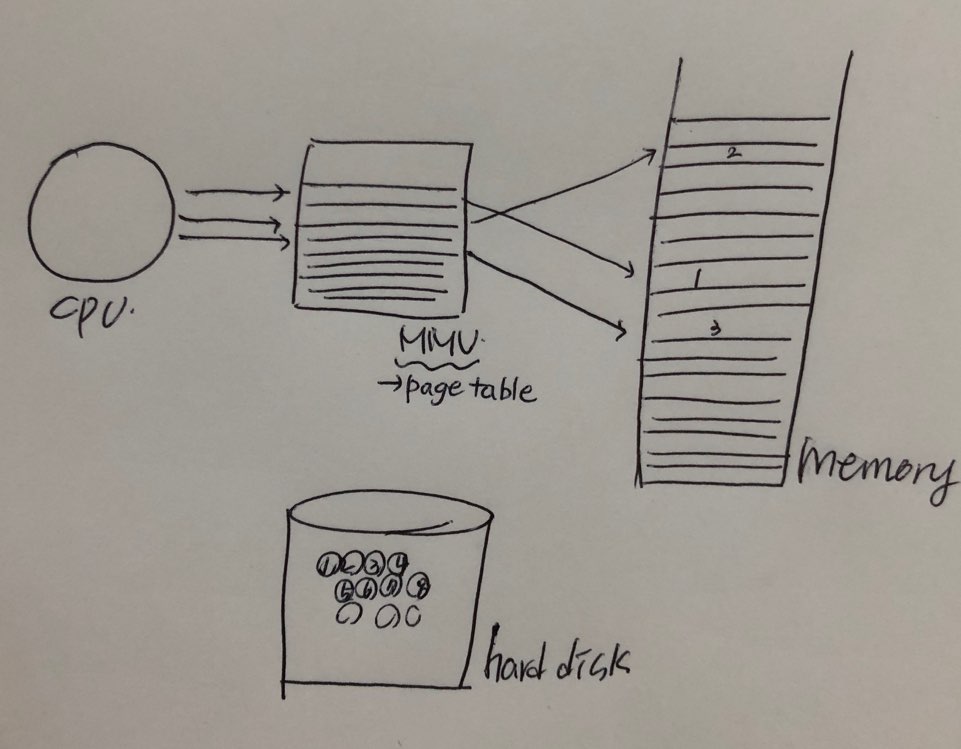 cpu.
MMU.
→page table
2
1
3
memory
1 2 3 4
5 6 7 8
hard disk